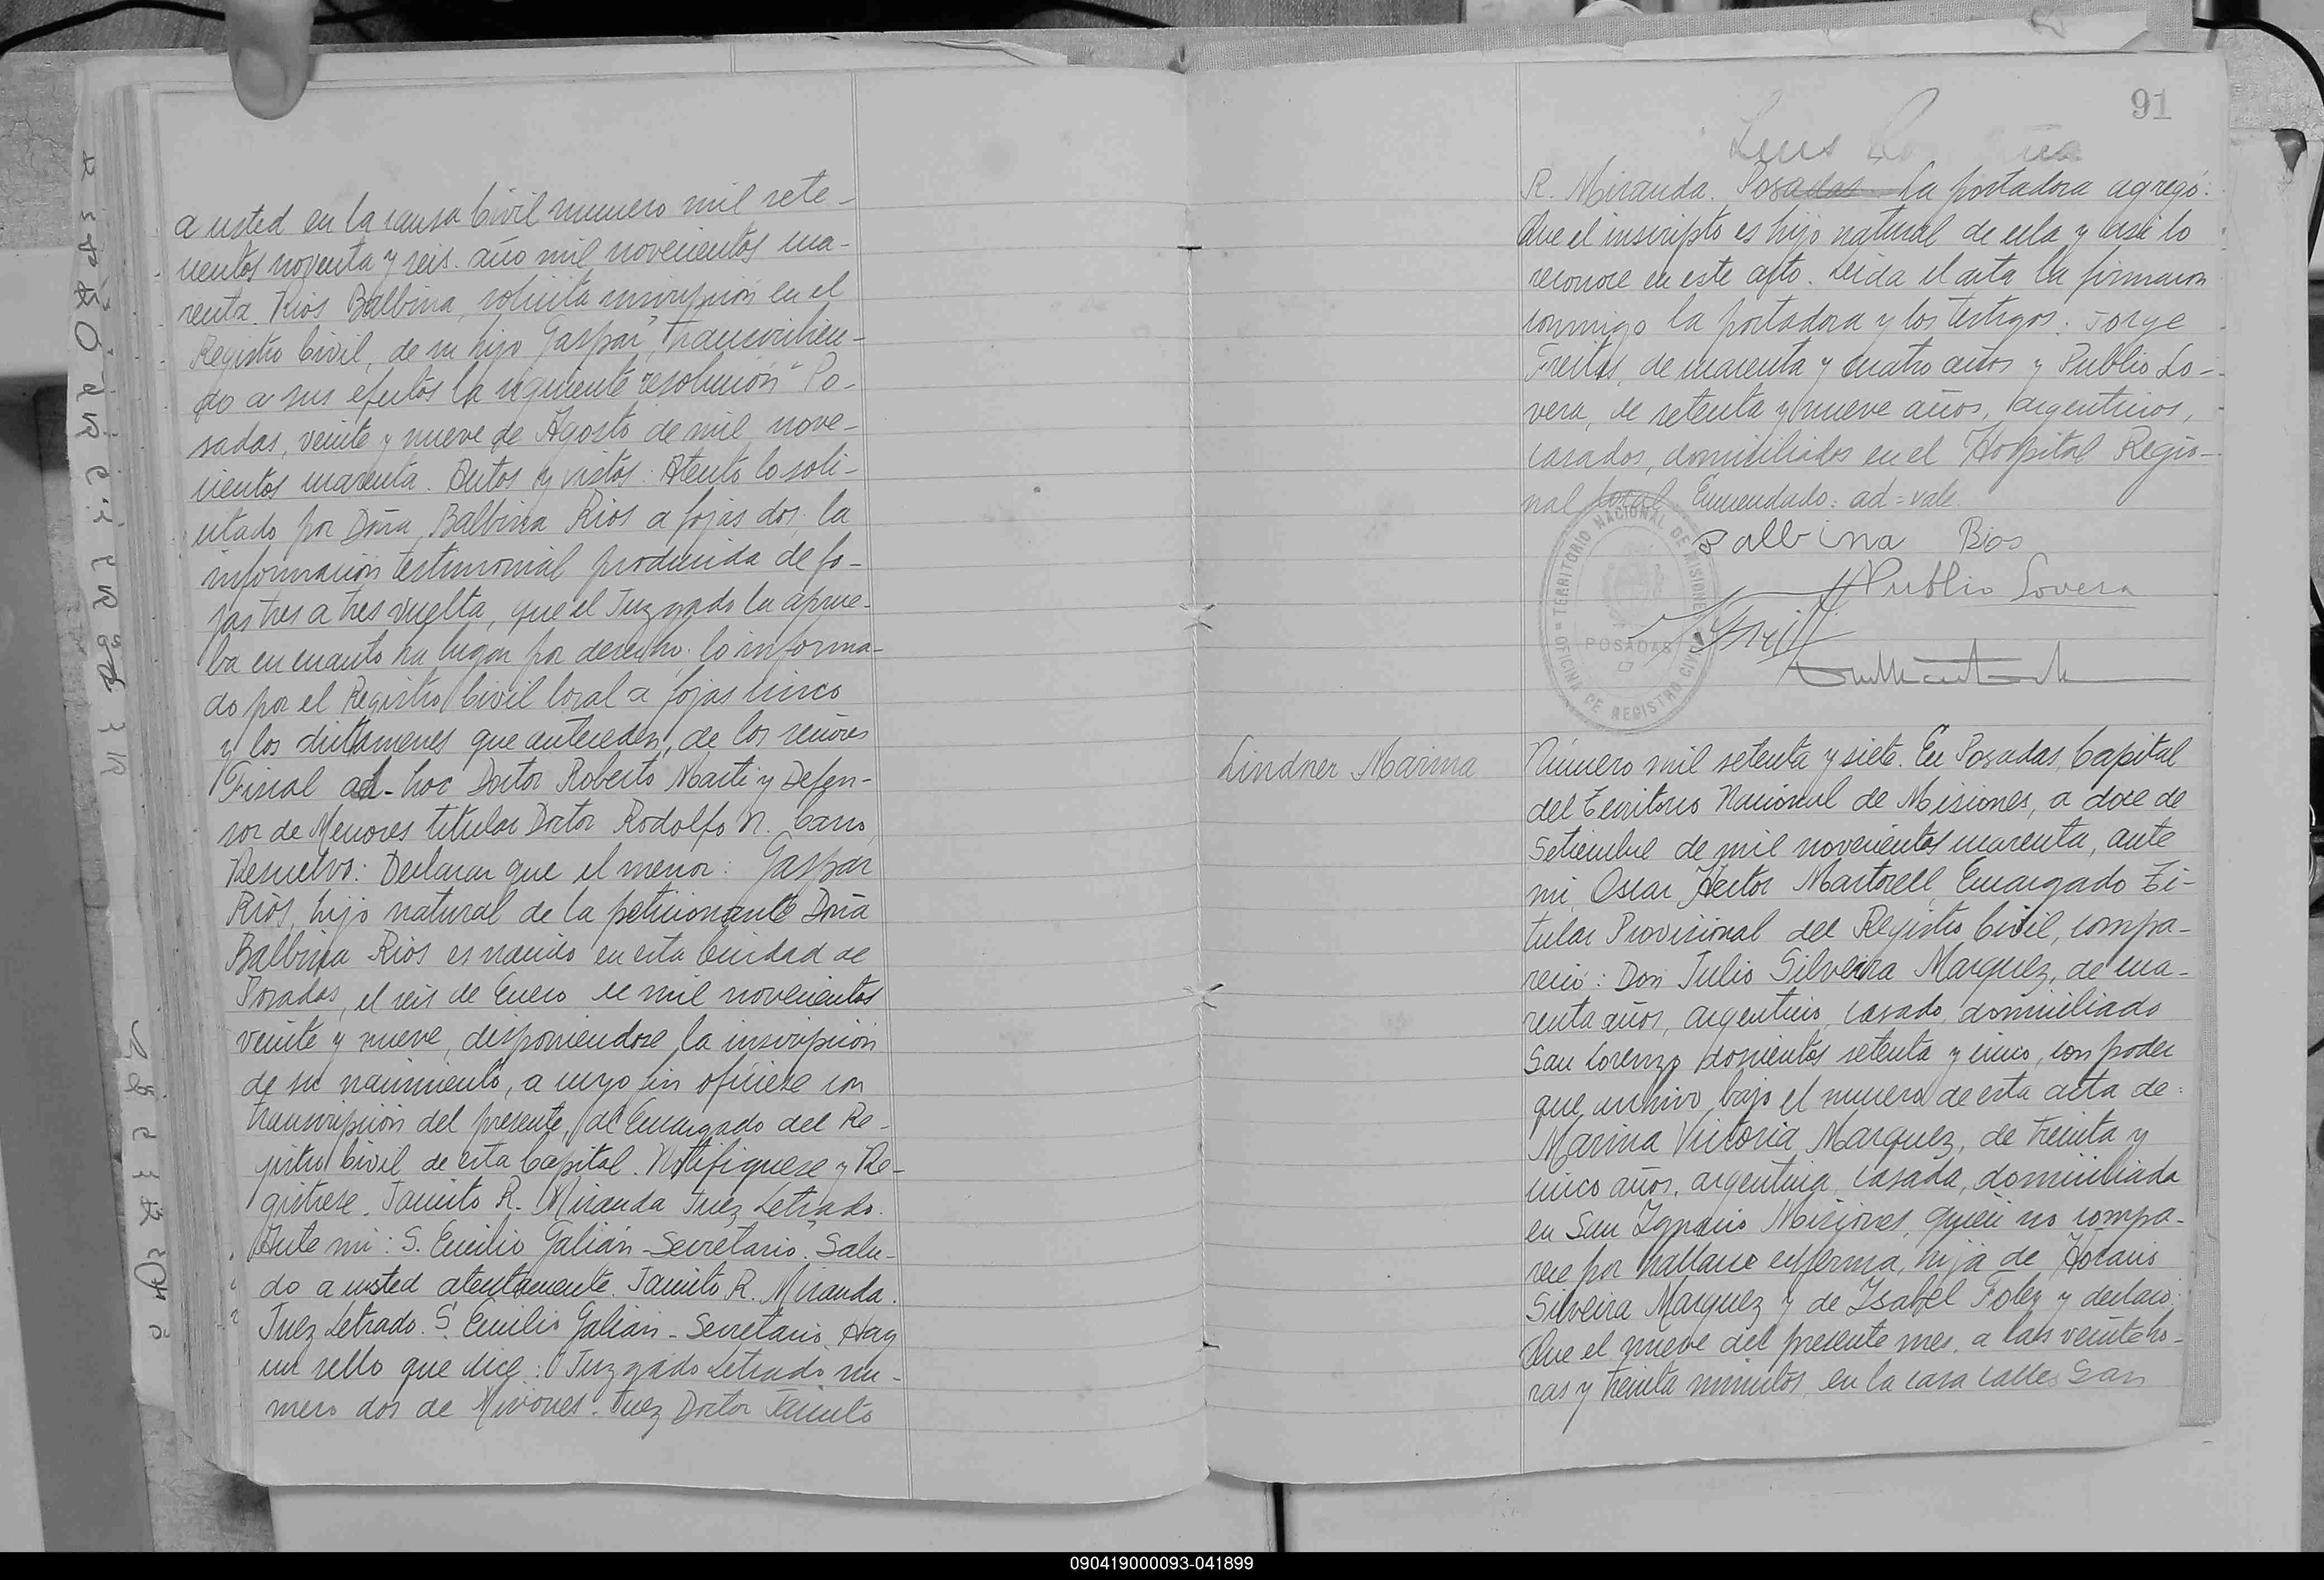 a usted en la causa Civil numero mil sete-
cientos noventa y seis. año mil novecientos cua-
renta. Rios Balbina, solicita inscripcion en el
Registro Civil, de su hijo Gaspar", transcribien-
do a sus efectos la siguiente resolución "Po-
sadas, veinte y nueve de Agosto de mil nove-
cientos cuarenta. Autos y vistos: Atento lo soli-
citado por Doña Balbina Rios a fojas dos, la
información testimonial producida de fo-
jas tres a tres vuelta, que el Juzgado la aprue-
ba en cuanto ha lugar por derecho. lo informa-
do por el Registro Civil local a fojas cinco
y los dictamenes que anteceden, de los señores
Fiscal ad-hoc Doctor Roberto Marti y Defen-
sor de Menores titular Doctor Rodolfo N.
Resuelvo: Declarar que el menor: Gaspar
Rios, hijo natural de la peticionante Doña
Balbina Rios es nacido en esta Ciudad de
Posadas, el seis de Enero de mil novecientos
veinte y nueve, disponiendose la inscripción
de su nacimiento, a cuyo fin ofíciese con
transcripción del presente, al Encargado del Re-
gistro Civil de esta Capital. Notifiquese y Re-
gistrese. Jacinto R. Miranda Juez Letrado.
Ante mi: S. Emilio Galián-Secretario. Salu-
do a usted atentamente. Jacinto R. Miranda.
Juez Letrado. S. Emilio Galián-Secretario. Hay
un sello que dice: "Juzgado Letrado nu-
mero dos de Misiones. Juez Doctor Jacinto
91
Luis
R. Miranda. Posadas La portadora agregó:
Que el inscripto es hijo natural de ella y asi lo
reconoce en este acto. Leida el acta la firmaron
conmigo la portadora y los testigos: Jorge
Freitas, de cuarenta y cuatro años y Publio Lo-
vera, de setenta y nueve años, argentinos,
casados, domiciliados en el Hospital Regio-
nal local. Enmendado: ad=vale.
Balbina Rios
Publio Lovera
TERRITORIO NACIONAL DE MISIONES
POSADAS
OFICINA DE REGISTRO CIVIL
Lindner Marina
Número mil setenta y siete. En Posadas, Capital
del Territorio Nacional de Misiones, a doce de
Setiembre de mil novecientos cuarenta, ante
mi, Oscar Hector Martorell, Encargado Ti-
tular Provisional del Registro Civil, compa-
reció: Don Julio Silveira Marquez, de cua-
renta años, argentino, casado, domiciliado
San Lorenzo doscientos setenta y cinco, con poder
que archivo bajo el numero de esta acta de:
Marina Victoria Marquez, de treinta y
cinco años, argentina, casada, domiciliada
en San Ignacio Misiones, quien no compa-
rece por hallarse enferma, hija de Horacio
Silveira Marquez y de Isabel Foley y declaró:
Que el nueve del presente mes, a las veinte ho-
ras y treinta minutos, en la casa calles San
090419000093-041899